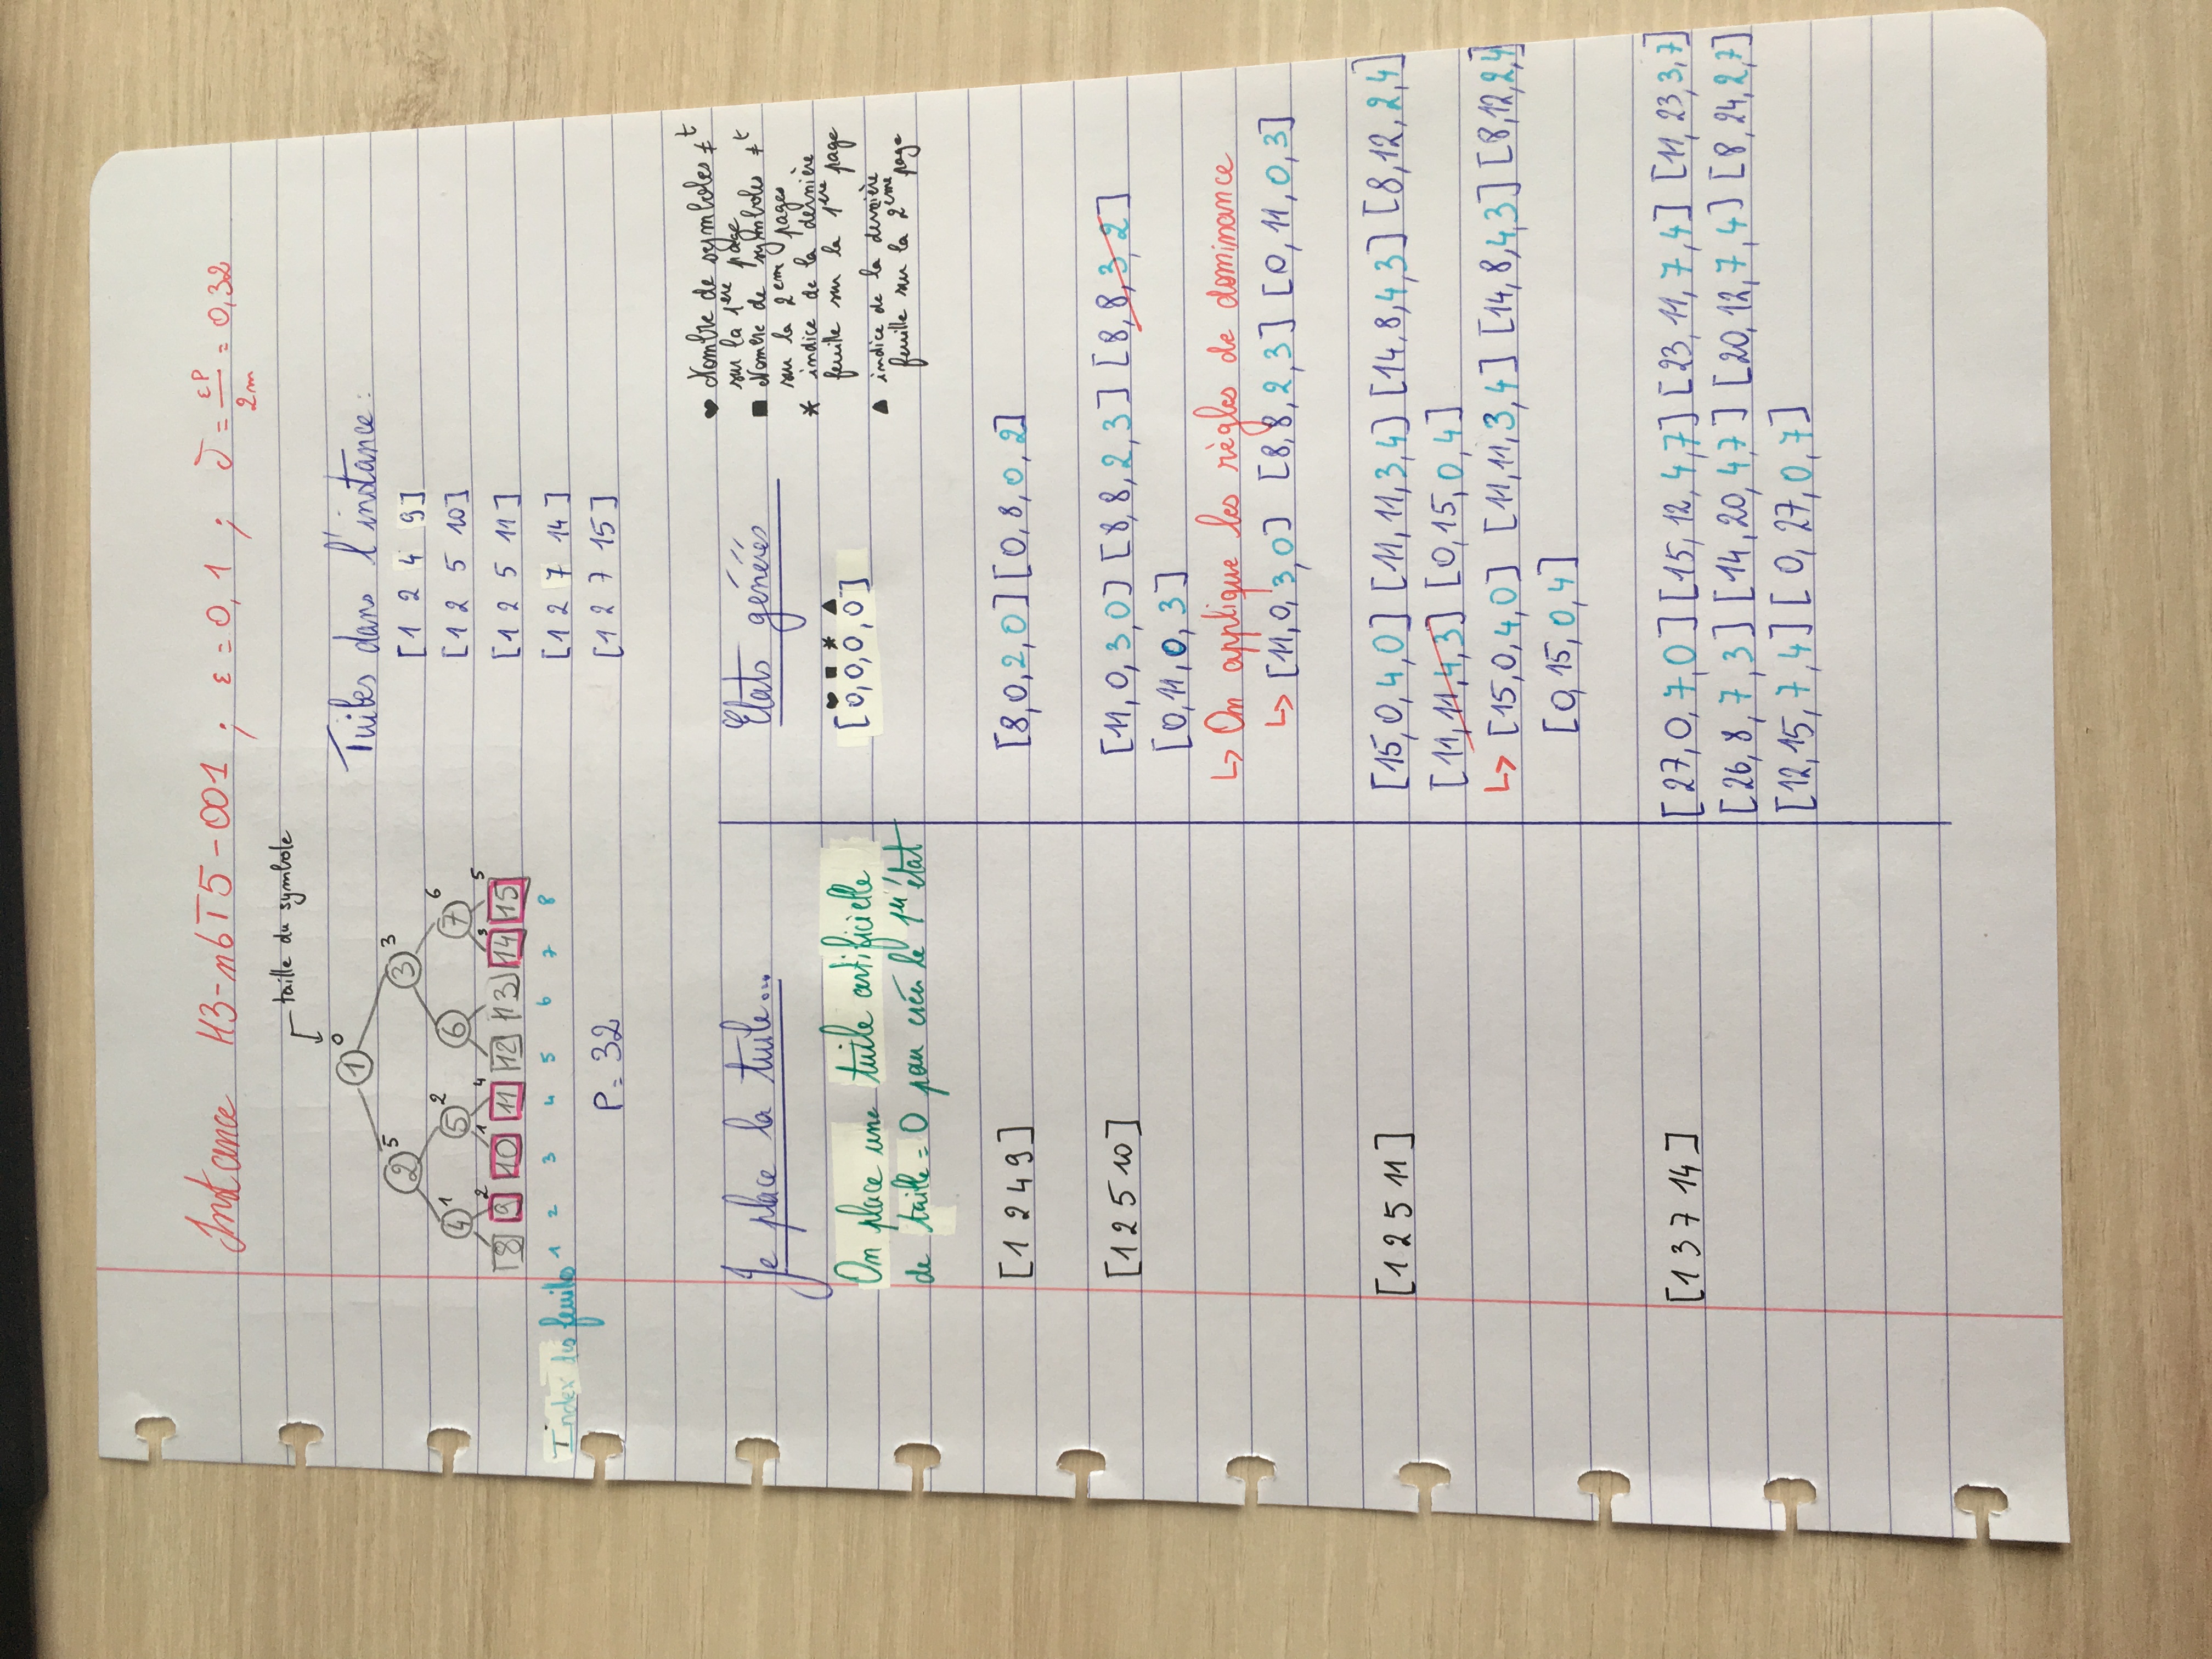 Instance H3-n6T5-001 ; ε = 0,1 ; δ = εP/2m = 0,32
taille du symbole
0
1
5
3
2
3
1
2
6
4
5
6
7
2
1
4
3
5
8 9 10 11 12 13 14 15
Index des feuilles 1 2 3 4 5 6 7 8
P = 32
Tuiles dans l'instance :
[1 2 4 9]
[1 2 5 10]
[1 2 5 11]
[1 2 7 14]
[1 2 7 15]
Je place la tuile...
Etats générés
♥ Nombre de symboles ≠t
sur la 1ère page
■ Nombre de symboles ≠t
sur la 2ème pages
* indice de la dernière
feuille sur la 1ère page
▲ indice de la dernière
feuille sur la 2ème page
On place une tuile artificielle
de taille = 0 pour créer le 1er état
♥ ■ * ▲
[0,0,0,0]
[1 2 4 9]
[8,0,2,0] [0,8,0,2]
[1 2 5 10]
[11,0,3,0] [8,8,2,3] [8,8,3,2]
[0,11,0,3]
↳ On applique les règles de dominance
↳ [11,0,3,0] [8,8,2,3] [0,11,0,3]
[1 2 5 11]
[15,0,4,0] [11,11,3,4] [14,8,4,3] [8,12,2,4]
[11,11,4,3] [0,15,0,4]
↳ [15,0,4,0] [11,11,3,4] [14,8,4,3] [8,12,2,4]
[0,15,0,4]
[1 3 7 14]
[27,0,7,0] [15,12,4,7] [23,11,7,4] [11,23,3,7]
[26,8,7,3] [14,20,4,7] [20,12,7,4] [8,24,2,7]
[12,15,7,4] [0,27,0,7]